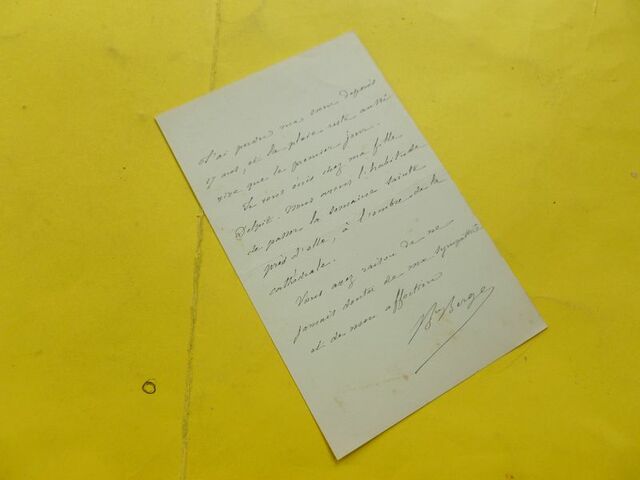 J'ai perdu ma mère depuis
17 ans, et la plaie reste aussi
vive que le premier jour.
Je vous écris chez ma fille
Delpit. Nous avons l'habitude
de passer la semaine sainte
près d'elle, à l'ombre de la
cathédrale.
Vous avez raison de ne
jamais douter de ma sympathie
et de mon affection
Berge